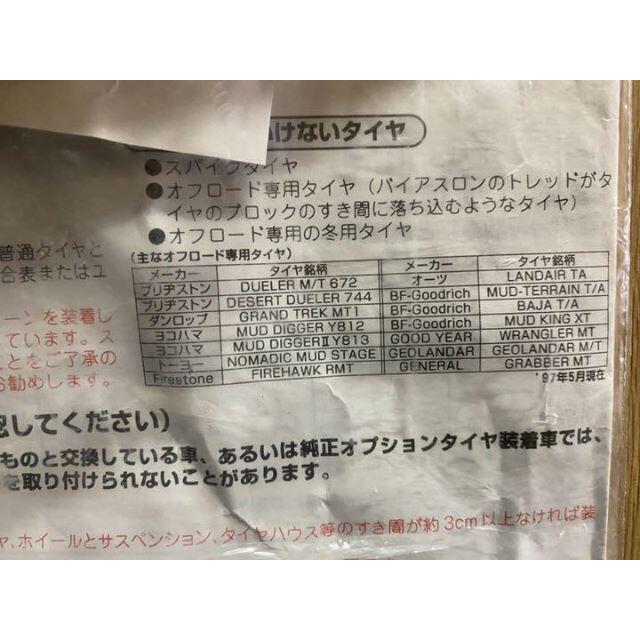 いけないタイヤ
●スパイクタイヤ
●オフロード専用タイヤ(バイアスロンのトレッドがタ
イヤのブロックのすき間に落ち込むようなタイヤ)
●オフロード専用の冬用タイヤ
(主なオフロード専用タイヤ)
メーカー タイヤ銘柄 メーカー タイヤ銘柄
ブリヂストン DUELER M/T 672 オーツ LANDAIR TA
ブリヂストン DESERT DUELER 744 BF-Goodrich MUD-TERRAIN T/A
ダンロップ GRAND TREK MT1 BF-Goodrich BAJA T/A
ヨコハマ MUD DIGGER Y812 BF-Goodrich MUD KING XT
ヨコハマ MUD DIGGERⅡY813 GOOD YEAR WRANGLER MT
トーヨー NOMADIC MUD STAGE GEOLANDAR GEOLANDAR M/T
Firestone FIREHAWK RMT GENERAL GRABBER MT
'97年5月現在
普通タイヤと
合表またはユ
ーンを装着し
ています。ス
ことをご了承の
お勧めします。
認してください)
ものと交換している車、あるいは純正オプションタイヤ装着車では、
を取り付けられないことがあります。
ヤ、ホイールとサスペンション、タイヤハウス等のすき間が約3cm以上なければ装